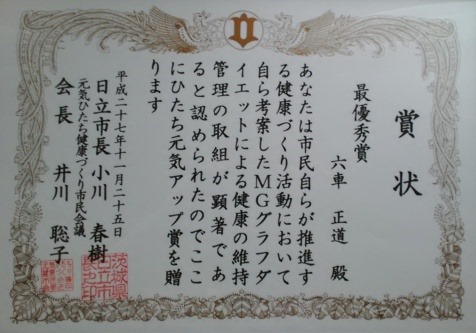 賞状
最優秀賞
六車 正道 殿
あなたは市民自らが推進す
る健康づくり活動において
自ら考案したMGグラフダ
イエットによる健康の維持
管理の取組が顕著であ
ると認められたのでここ
にひたち元気アップ賞を贈
ります
平成二十七年十一月二十五日
日立市長 小川 春樹
元気ひたち健康づくり市民会議
会長 井川 聡子
茨城県
日立市
長之印